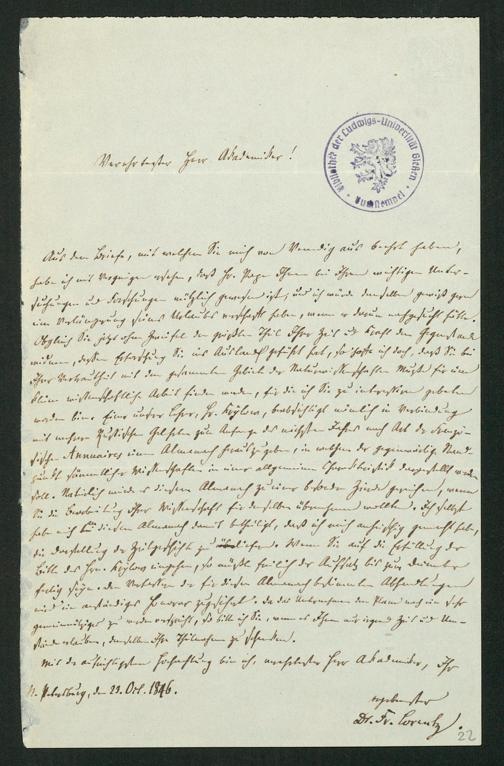 Verehrtester Herr Akademiker!
Bibliothek der Ludwigs-Universität Gießen
Aus dem Briefe, mit welchem Sie mich von Venedig aus beehrt haben,
habe ich mit Vergnügen ersehen, daß Hr. Page Ihnen bei Ihren wichtigen Unter-
suchungen und Forschungen nützlich gewesen ist, und ich würde demselben gewiß gern
eine Verlängerung seines Urlaubs verschafft haben, wenn er darum nachgesucht hätte.
Obgleich Sie jetzt ohne Zweifel den größten Theil Ihrer Zeit und Kraft dem Gegenstande
widmen, dessen Erforschung Sie ins Ausland geführt hat, so hoffe ich doch, daß Sie bei
Ihrer Vertrautheit mit dem gesammten Gebiete der Naturwissenschaften Muße für eine
kleine wissenschaftliche Arbeit finden werden, für die ich Sie zu interessiren gebeten
worden bin. Einer unserer Lehrer, Hr. Krylow, beabsichtigt nämlich in Verbindung
mit mehren Russischen Gelehrten zum Anfange des nächsten Jahres nach Art der Franzö-
sischen Annuaires einen Almanach herauszugeben, in welchem der gegenwärtige Stand-
punkt sämmtlicher Wissenschaften in einer allgemeinen Charakteristik dargestellt werden
soll. Natürlich würde es diesem Almanach zu einer besondern Zierde gereichen, wenn
Sie die Bearbeitung Ihrer Wissenschaft für denselben übernehmen wollten. Ich selbst
habe mich bei diesem Almanach damit betheiligt, daß ich mich anheischig gemacht habe,
die Darstellung der Zeitgeschichte zu liefern. Wenn Sie auf die Erfüllung der
Bitte des Hrn. Krylow eingehen, so müßte freilich der Aufsatz bis zum December
fertig seyn. Den Verfassern der für diesen Almanach bestimmten Abhandlungen
wird ein anständiges Honorar zugesichert. Da das Unternehmen dem Plane nach ein sehr
gemeinnütziges zu werden verspricht, so bitte ich Sie, wenn es Ihnen nur irgend Zeit und Um-
stände erlauben, demselben Ihre Theilnahme zu schenken.
Mit der aufrichtigsten Hochachtung bin ich, verehrtester Herr Akademiker, Ihr
St. Petersburg, den 23. Oct. 1846.
ergebenster
Dr. Fr. Lorentz.
22